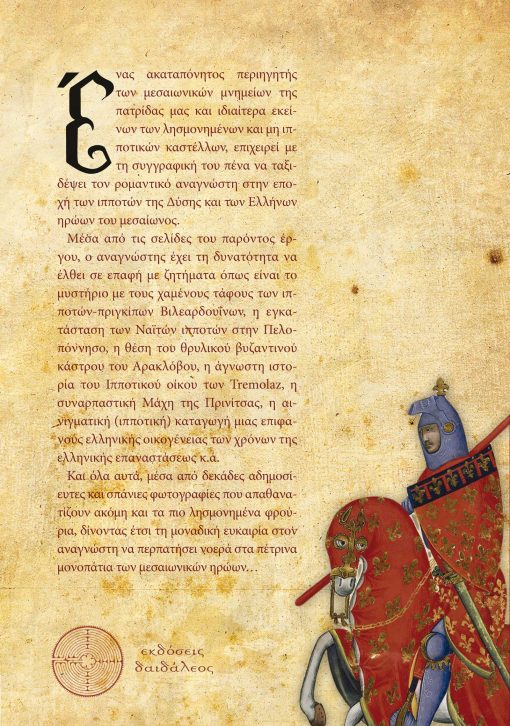 Ένας ακαταπόνητος περιηγητής
των μεσαιωνικών μνημείων της
πατρίδας μας και ιδιαίτερα εκεί-
νων των λησμονημένων και μη ιπ-
ποτικών καστέλλων, επιχειρεί με
τη συγγραφική του πένα να ταξι-
δέψει τον ρομαντικό αναγνώστη στην επο-
χή των ιπποτών της Δύσης και των Ελλήνων
ηρώων του μεσαίωνος.
Μέσα από τις σελίδες του παρόντος έρ-
γου, ο αναγνώστης έχει τη δυνατότητα να
έλθει σε επαφή με ζητήματα όπως είναι το
μυστήριο με τους χαμένους τάφους των ιπ-
ποτών-πριγκίπων Βιλεαρδουΐνων, η εγκα-
τάσταση των Ναϊτών ιπποτών στην Πελο-
πόννησο, η θέση του θρυλικού βυζαντινού
κάστρου του Αρακλόβου, η άγνωστη ιστο-
ρία του Ιπποτικού οίκου των Tremolaz, η
συναρπαστική Μάχη της Πρινίτσας, η αι-
νιγματική (ιπποτική) καταγωγή μιας επιφα-
νούς ελληνικής οικογένειας των χρόνων της
ελληνικής επαναστάσεως κ.ά.
Και όλα αυτά, μέσα από δεκάδες αδημοσί-
ευτες και σπάνιες φωτογραφίες που απαθανα-
τίζουν ακόμη και τα πιο λησμονημένα φρού-
ρια, δίνοντας έτσι τη μοναδική ευκαιρία στον
αναγνώστη να περπατήσει νοερά στα πέτρινα
μονοπάτια των μεσαιωνικών ηρώων...
εκδόσεις
δαιδάλεος